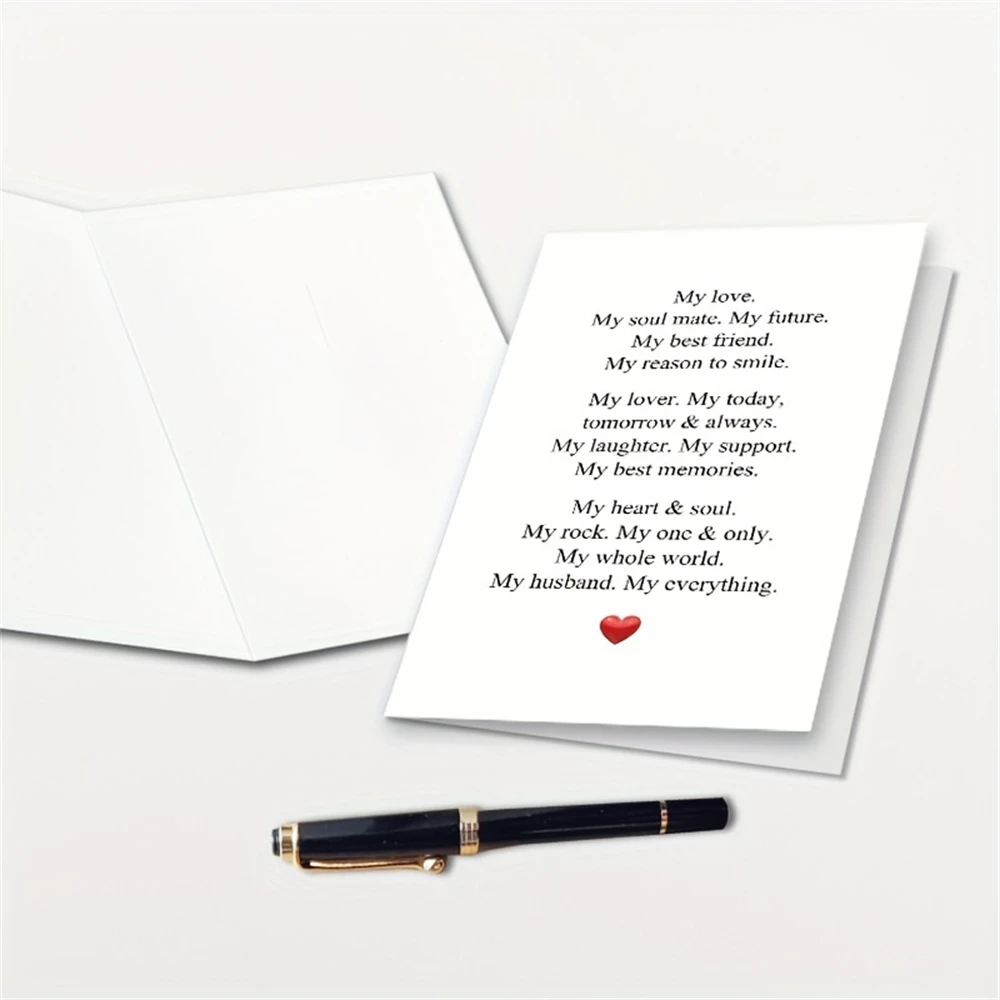 My love.
My soul mate. My future.
My best friend.
My reason to smile.
My lover. My today,
tomorrow & always.
My laughter. My support.
My best memories.
My heart & soul.
My rock. My one & only.
My whole world.
My husband. My everything.